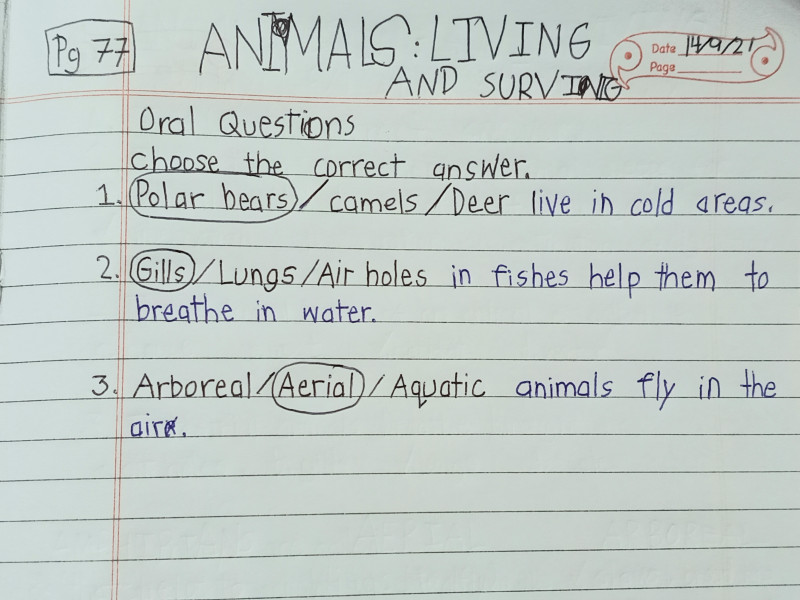 Pg 77
ANIMALS: LIVING
AND SURVING
Date 14/9/21
Page
Oral Questions
choose the correct answer.
1. Polar bears/camels/Deer live in cold areas.
2. Gills/Lungs/Air holes in fishes help them to
breathe in water.
3. Arboreal/Aerial/Aquatic animals fly in the
air.